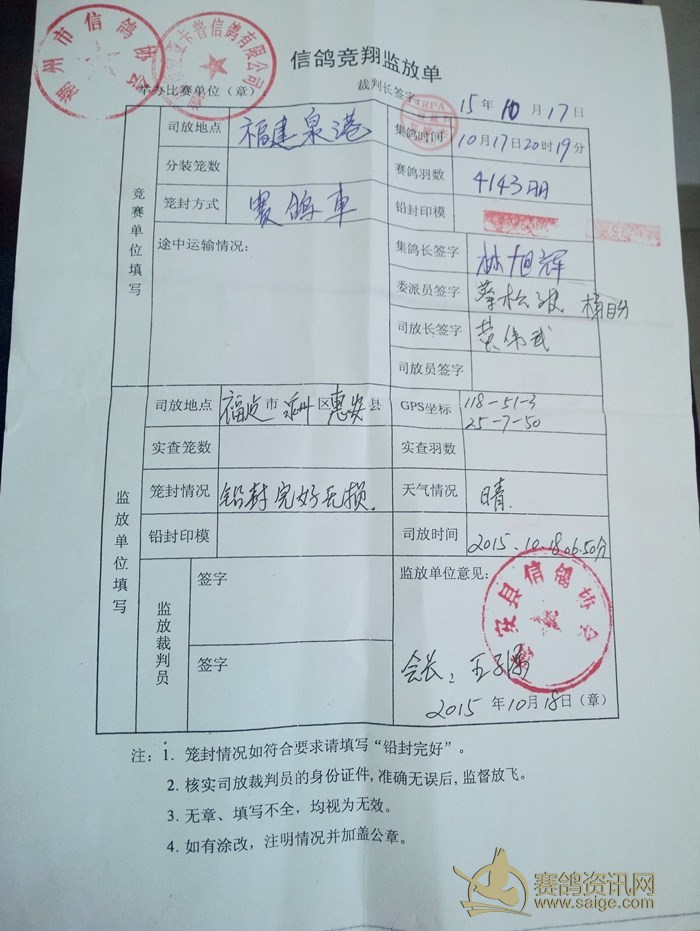 信鸽竞翔监放单
州市信鸽
卡普信鸽有限公司
举办比赛单位（章）
裁判长签字
15年10月17日
竞赛单位填写
司放地点 福建泉港 集鸽时间 10月17日20时19分
分装笼数 赛鸽羽数 4143羽
笼封方式 赛鸽車 铅封印模
途中运输情况： 集鸽长签字 林旭辉
委派员签字
司放长签字 黄伟武
司放员签字
监放单位填写
司放地点 福建市泉州区惠安县 GPS坐标 118-51-3
25-7-50
实查笼数 实查羽数
笼封情况 铅封完好无损. 天气情况 晴.
铅封印模 司放时间 2015.10.18.06:50分
监放裁判员 签字 监放单位意见：
安县信鸽协会
签字 会长：王
2015年10月18日（章）
注：1. 笼封情况如符合要求请填写“铅封完好”。
2. 核实司放裁判员的身份证件，准确无误后，监督放飞。
3. 无章、填写不全，均视为无效。
4. 如有涂改，注明情况并加盖公章。
赛鸽资讯网
www.saige.com